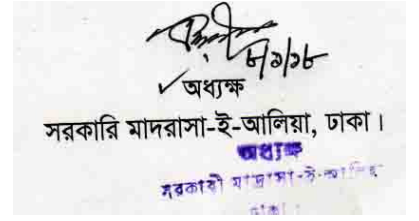 ৮/১/১৮
অধ্যক্ষ
সরকারি মাদরাসা-ই-আলিয়া, ঢাকা।
অধ্যক্ষ
সরকারী মাদ্রাসা-ই-আলিয়া
ঢাকা।